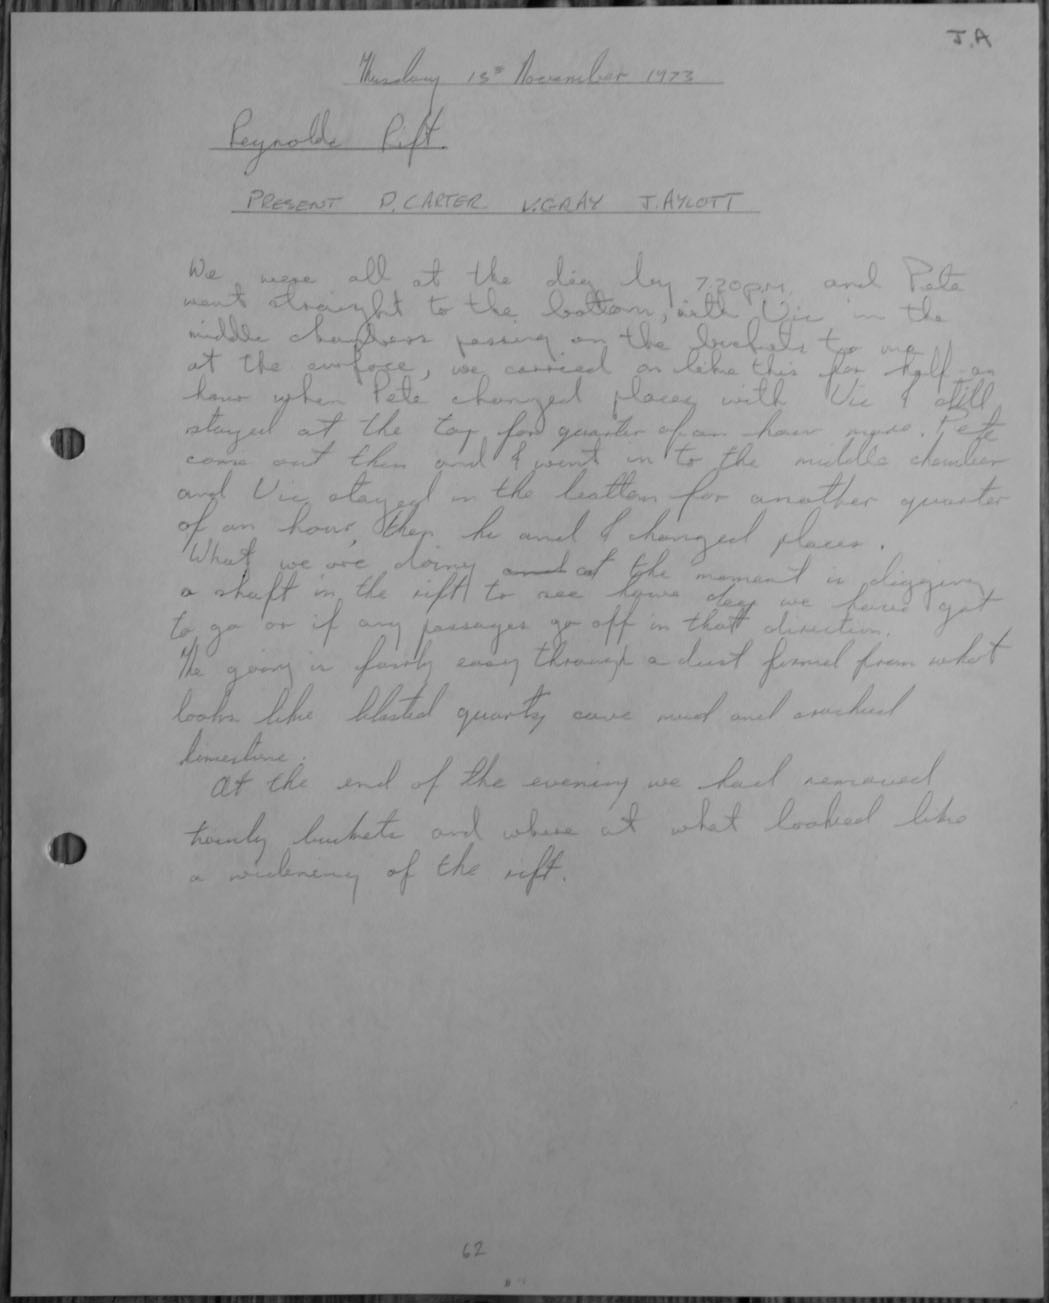 J.A
Thursday 15th November 1973
Reynolds Rift.
PRESENT P. CARTER V. GRAY J. AYLOTT
We were all at the dig by 7.20p.m. and Pete
went straight to the bottom, with Vic in the
middle chambers passing on the buckets to me
at the surface, we carried on like this for half an
hour when Pete changed places with Vic I still
stayed at the top for quarter of an hour more. Pete
came out then and I went in to the middle chamber
and Vic stayed in the bottom for another quarter
of an hour, then he and I changed places.
What we are doing and at the moment is digging
a shaft in the rift to see how deep we have got
to go or if any passages go off in that direction.
The going is fairly easy through a dust formed from what
looks like blasted quartz, cave mud and cracked
limestone.
At the end of the evening we had removed
twenty buckets and where at what looked like
a widening of the rift.
62